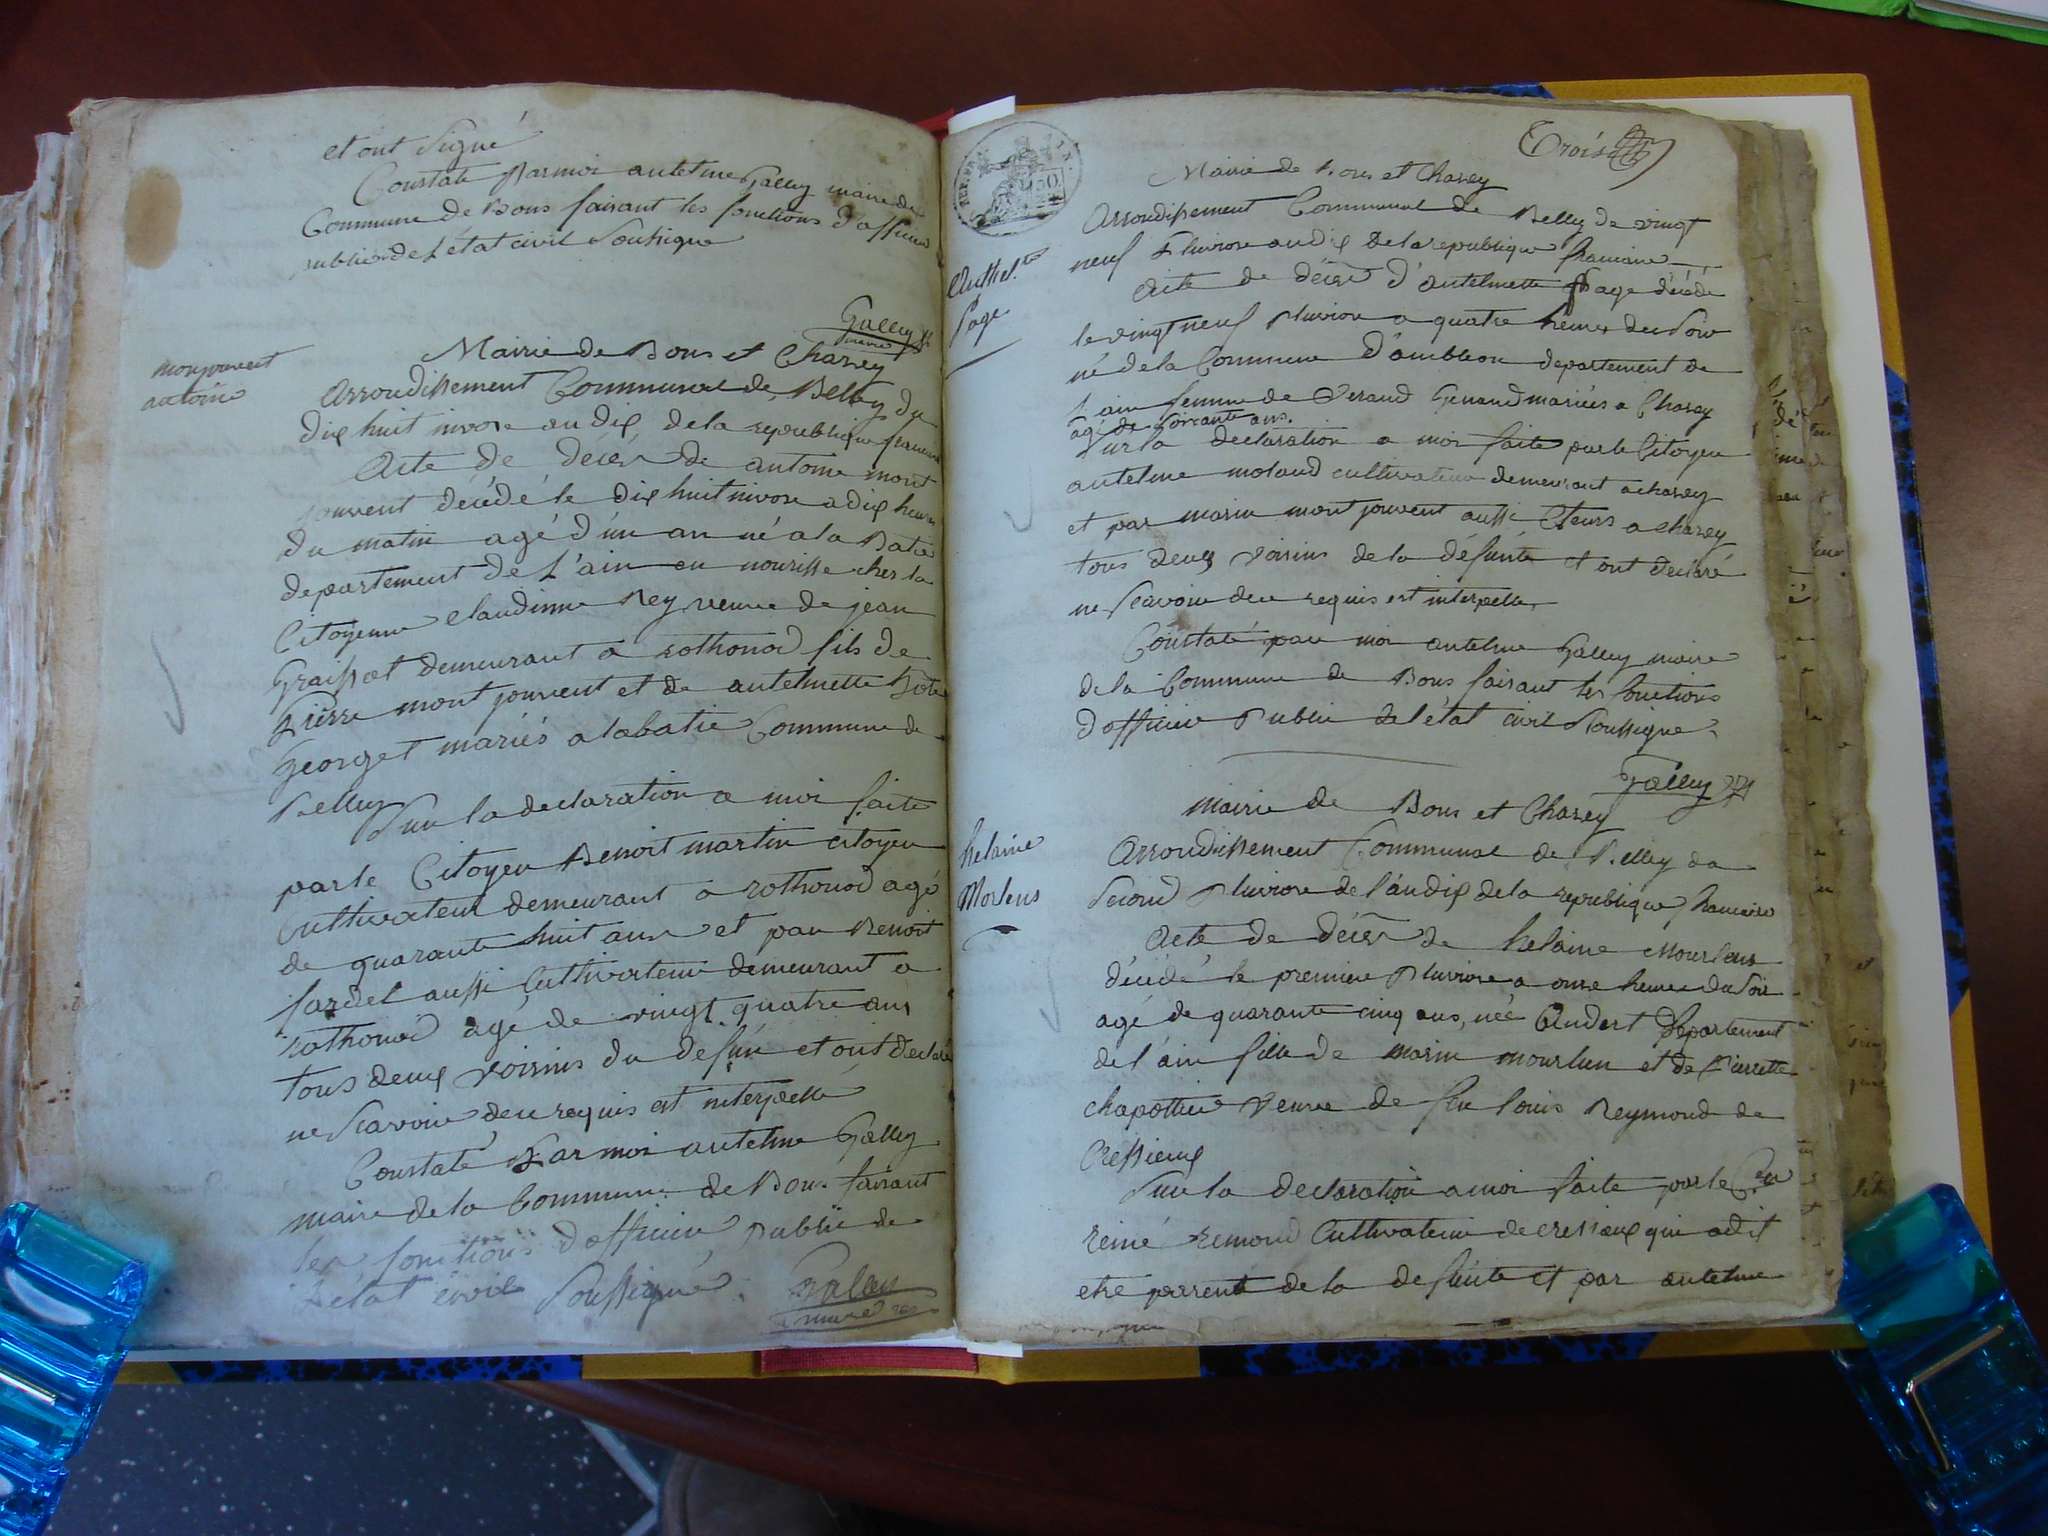 et ont Signé
Constaté Par moi antelme Galley maire de
Commune de Bons faisant les fonctions d'officier
public de L'état civil Soussigne
Galley
maire
monjouvent
antoine
Mairie de Bons et Chazey
Arrondissement Communal de Belley du
dix huit nivose an dix de la republique francaise
Acte de décès de antoine mont
jouvent décédé le dix huit nivose a dix heures
du matin agé d'un an né a la Batie
departement de L'ain en nourisse ches la
Citoyenne claudinne Rey veuve de jean
demeurant a rothonod fils de
Pierre mont jouvent et de antelmette
Georget mariés a labatie Commune de
Belley
Sur la declaration a moi faite
par le Citoyen Benoit martin citoyen
Cultivateur demeurant a rothonod agé
de quarante huit ans et par Benoit
fardel aussi Cultivateur demeurant a
rothonod agé de vingt quatre ans
tous deux voisins du defun et ont declaré
ne Scavoir de ce requis est interpellé
Constaté Par moi antelme Galley
maire de la Commune de Bons faisant
les fonctions d'officier public de
L'état civil Soussigné
Trois
Anthel.te
Page
Mairie de Bons et Chazey
Arrondissement Communal de Belley de vingt
neuf Pluviose an dix de la republique francaise
Acte de décès d'antelmette Page décédé
le vingt neuf pluviose a quatre heures du Soir
né de la Commune d'ambleon departement de
L'ain femme de mariés a Chazey
agé de Soixante ans.
Sur la declaration a moi faite par le Citoyen
antelme molaud cultivateur demeurant a chazey
et par marin mont jouvent aussi Cteurs a chazey
tous deux voisins de la défunte et ont declaré
ne Scavoir de ce requis est interpelle
Constaté par moi antelme Galley maire
de la Commune de Bons faisant les fonctions
d'officier Public de l'état civil Soussigne
Galley
helaine
Morlens
Mairie de Bons et Chazey
Arrondissement Communal de Belley du
Second Pluviose de l'an dix de la republique francaise
Acte de décès de helaine Mourlens
décédé le premier Pluviose a onse heures du Soir
agé de quarante cinq ans, née Andert Departement
de l'ain fille de marin mourlun et de Pierrette
chapottier veuve de feu louis Reymond de
Cressieux
Sur la declaration a moi faite par le C.en
reimé remond Cultivateur de cressieux qui a dit
etre parrent de la defunte et par antelme